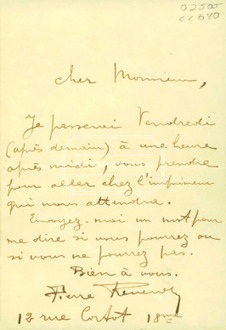 02505
cc 640
cher Monsieur,
Je passerai Vendredi
(après demain) à une heure
après midi, vous prendre
pour aller chez l'imprimeur
qui nous attendra.
Envoyez-moi un mot pour
me dire si vous pourrez ou
si vous ne pourrez pas.
Bien à vous.
Pierre Reverdy
12 rue Cortot 18me